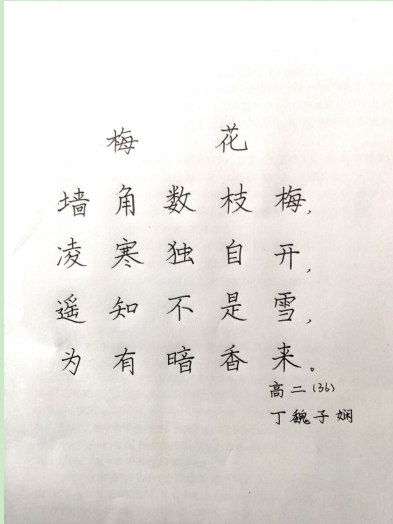 梅 花
墙角数枝梅,
凌寒独自开,
遥知不是雪,
为有暗香来。
高二(36)
丁魏子娴